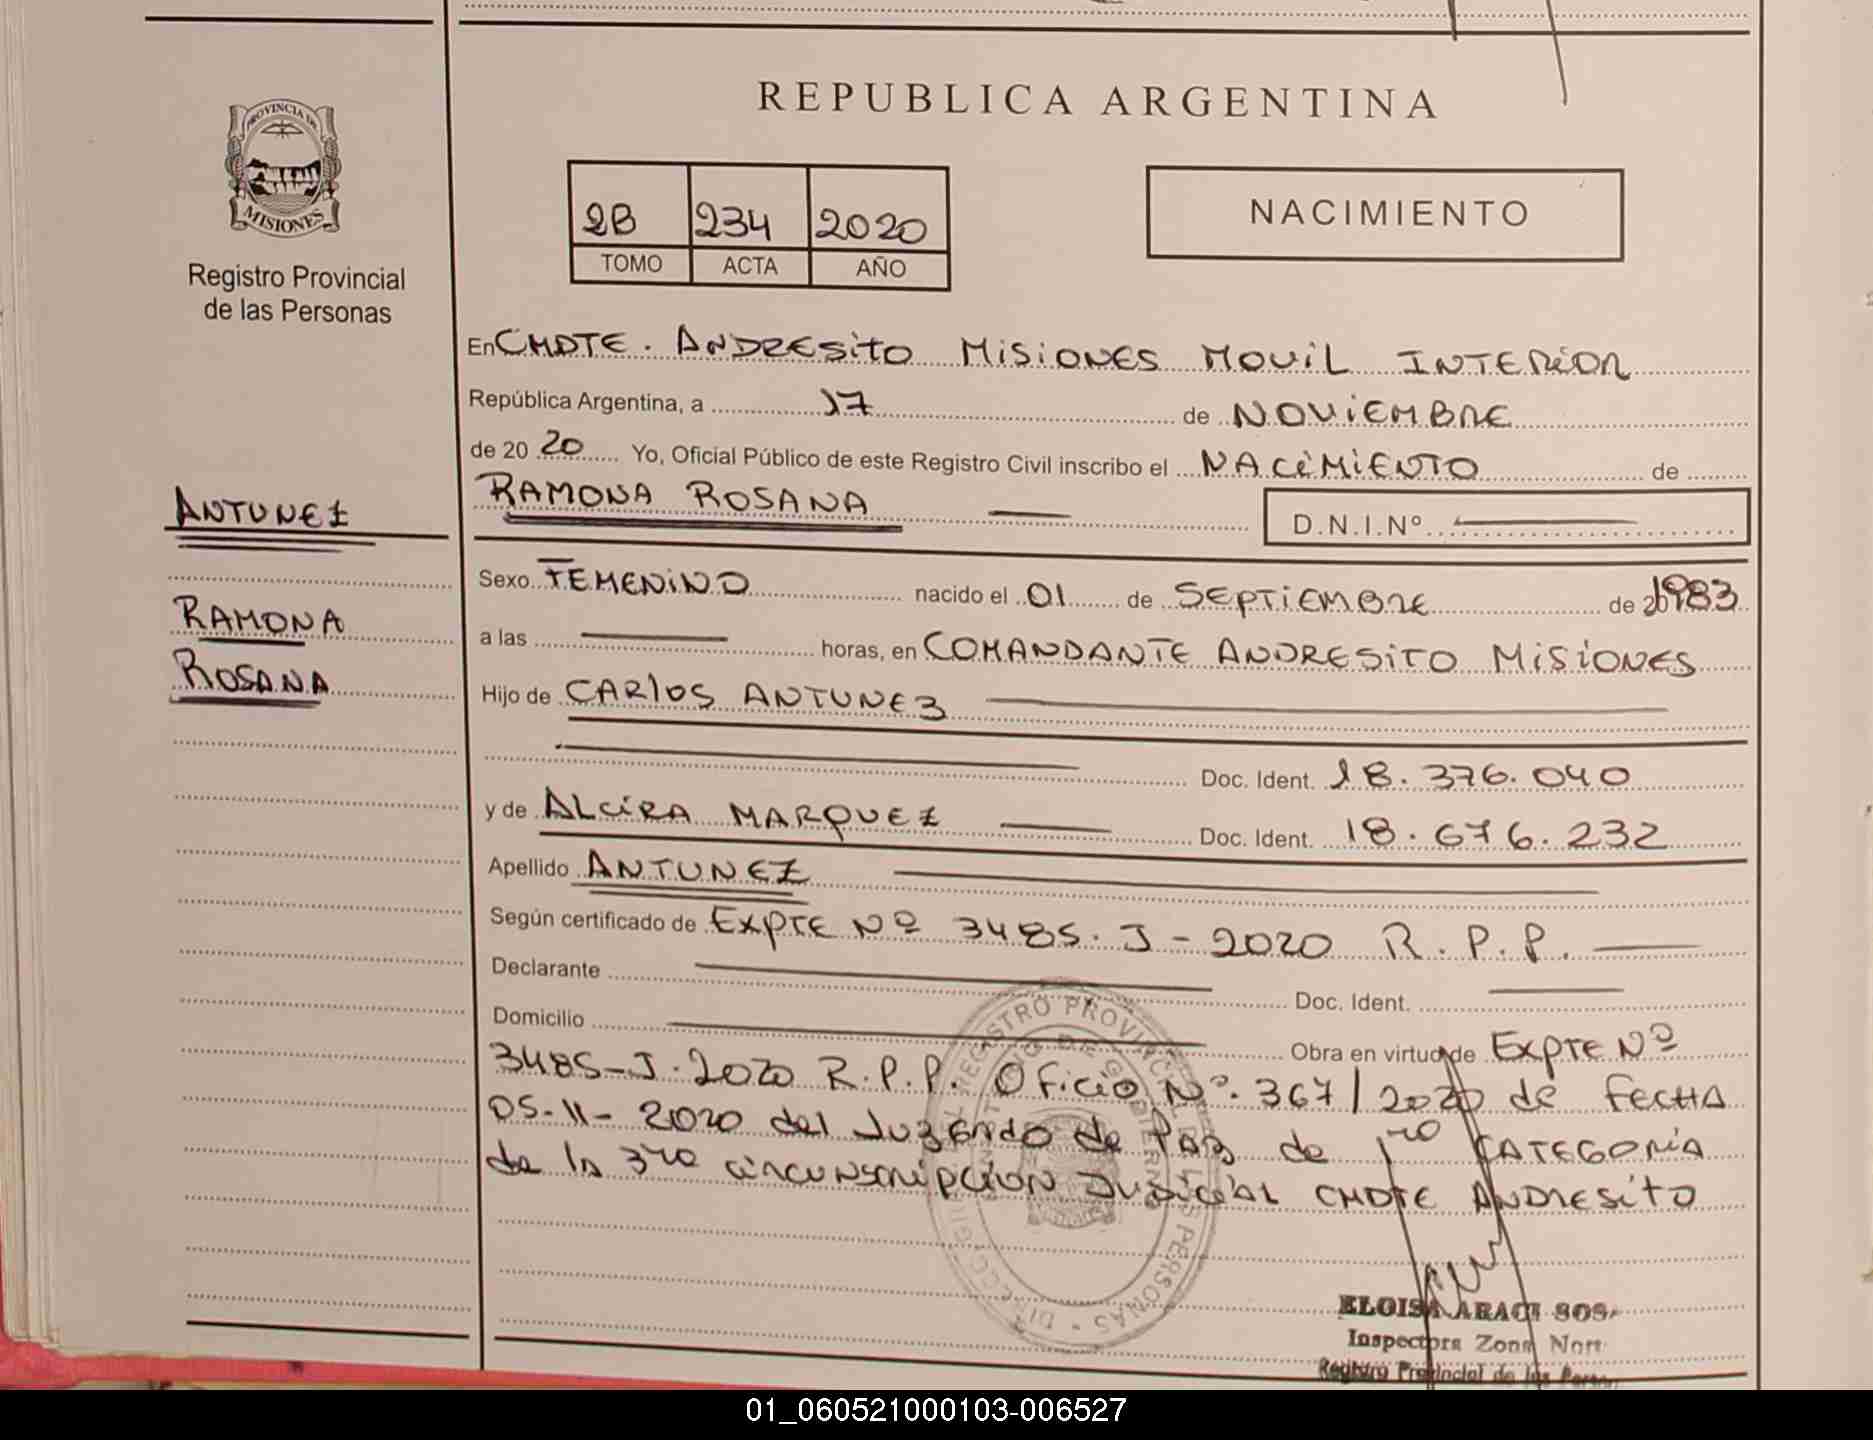 REPUBLICA ARGENTINA
PROVINCIA DE
MISIONES
Registro Provincial
de las Personas
2B 234 2020
TOMO ACTA AÑO
NACIMIENTO
En CMDTE. ANDRESITO MISIONES MOVIL INTERIOR
República Argentina, a 17 de NOVIEMBRE
de 20 20 Yo, Oficial Público de este Registro Civil inscribo el NACIMIENTO de
RAMONA ROSANA
D.N.I.Nº
ANTUNEZ
RAMONA
ROSANA
Sexo FEMENINO nacido el 01 de SEPTIEMBRE de 1983
a las horas, en COMANDANTE ANDRESITO MISIONES
Hijo de CARLOS ANTUNEZ
Doc. Ident. 18.376.040
y de ALCIRA MARQUEZ Doc. Ident. 18.676.232
Apellido ANTUNEZ
Según certificado de EXPTE Nº 3485.J-2020 R.P.P.
Declarante Doc. Ident.
Domicilio Obra en virtud de EXPTE Nº
3485-J.2020 R.P.P. OFICIO Nº.367/2020 de FECHA
05-11-2020 del JUZGADO de PAZ de 1ra CATEGORIA
de la 3ra CIRCUNSCRIPCION JUDICIAL CMDTE ANDRESITO
REGISTRO PROVINCIAL DE LAS PERSONAS
ELOISA ARACI SOS
Inspectora Zona Nort
Registro Provincial de las Person
01_060521000103-006527